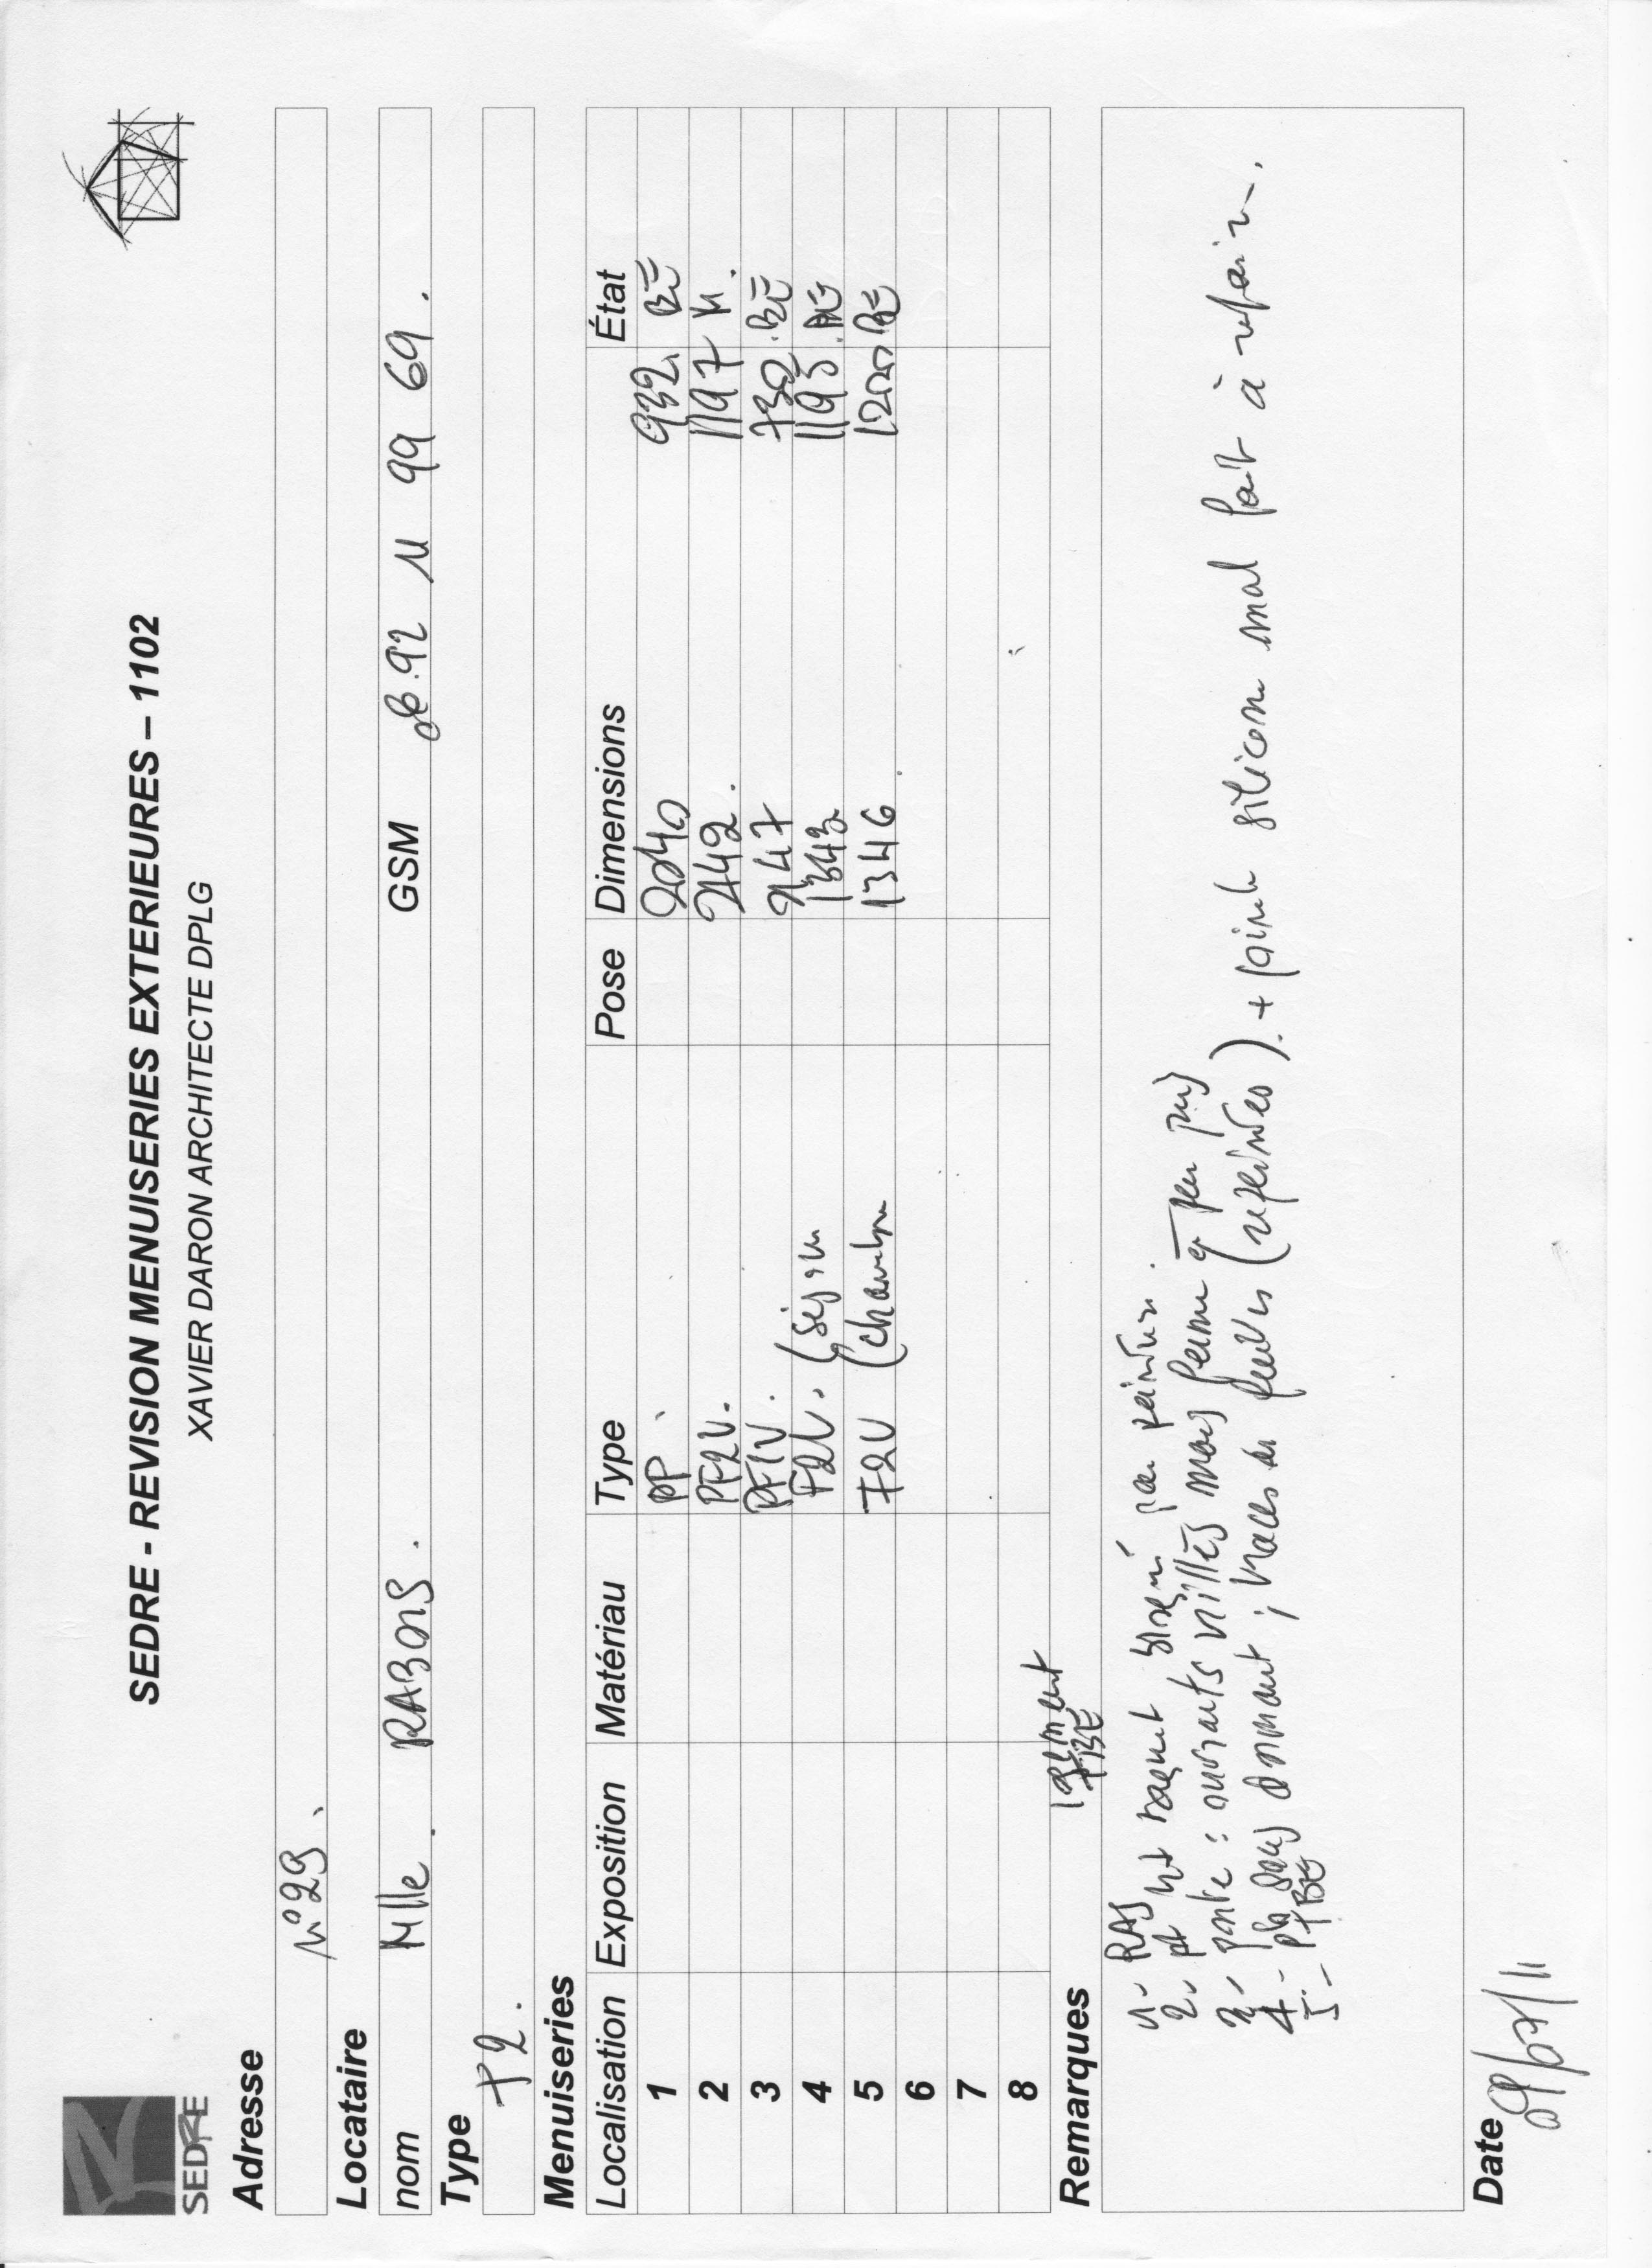 SEDRE
SEDRE - REVISION MENUISERIES EXTERIEURES – 1102
XAVIER DARON ARCHITECTE DPLG
Adresse
n°29.
Locataire
nom Mlle. RABONS. GSM 06.92 11 99 69.
Type
T2.
Menuiseries
Localisation Exposition Matériau Type Pose Dimensions État
1 PP. 2040 932 BE
2 PF2V. 2142. 1197
3 PF1V. 2147 730. BE
4 F2V. (séjour 1343 1195.
5 F2V (chambre 1346 1200 BE
6
7
8
Remarques
TBE
1- RAS
2- par peinture.
3- porte : ouvrants mais ferme à peu près
4- dormant ; traces de (repeintes). + joint silicone mal fait à refaire.
5- TBE
Date /07/11